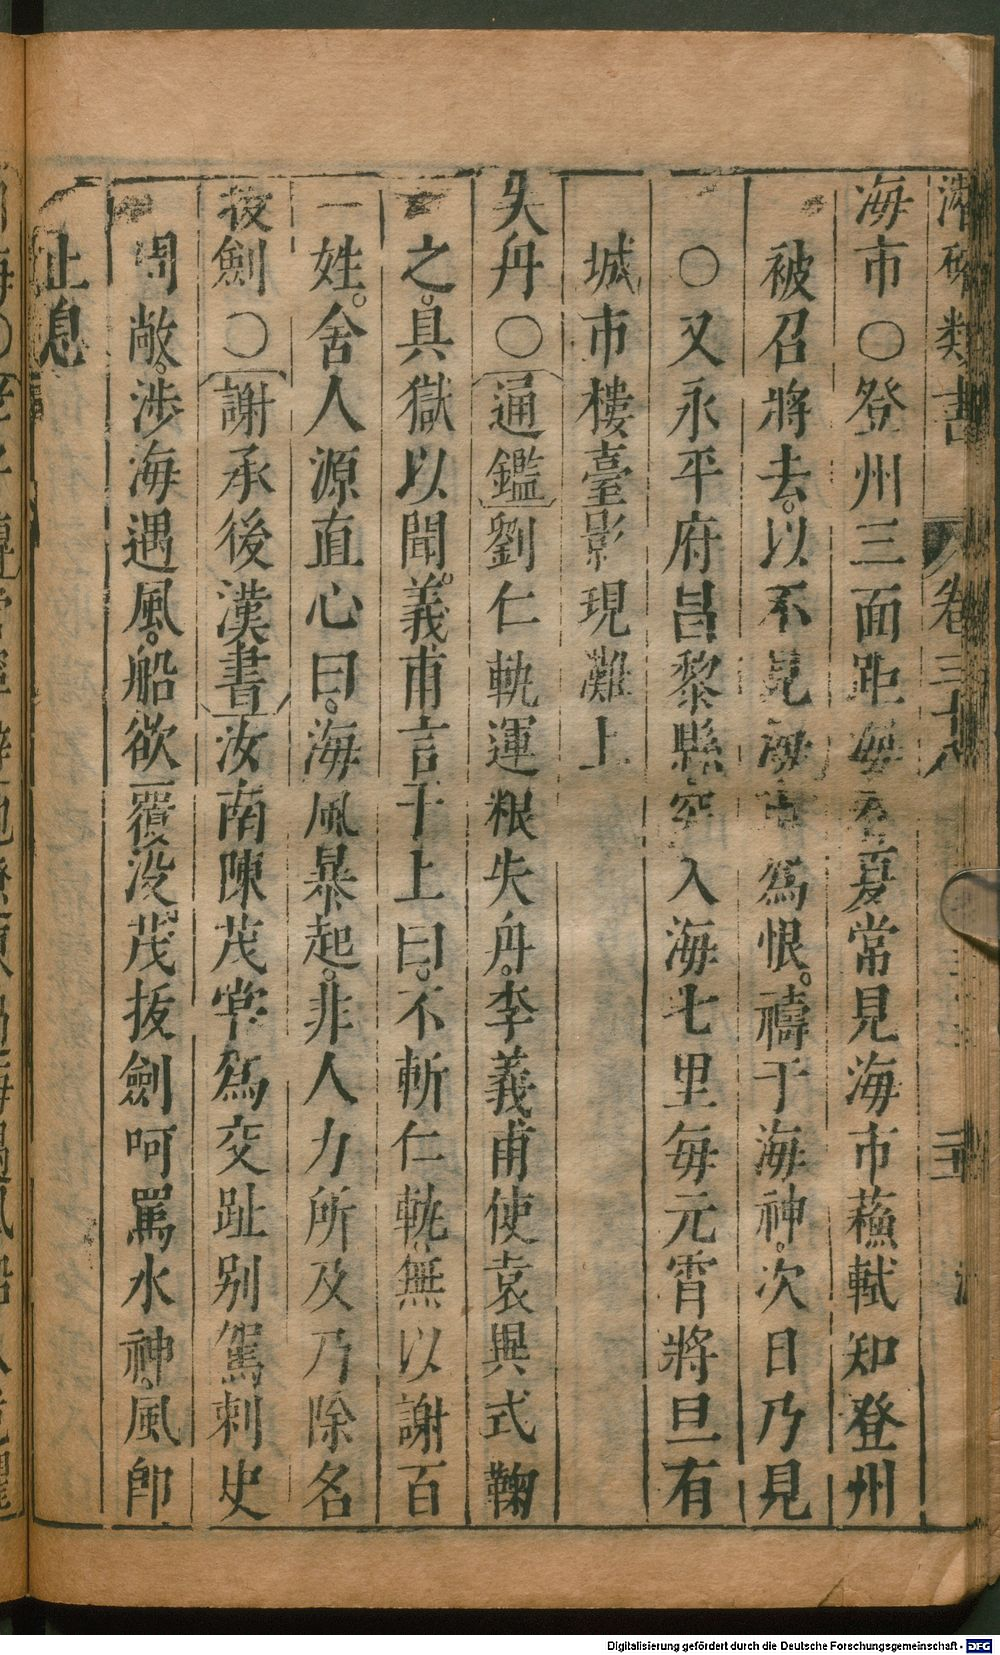 潛確類書 卷三十 三
海市○登州三面距海春夏常見海市蘓軾知登州
被召將去。以不見海市爲恨。禱于海神。次日乃見
○又永平府昌黎縣突入海七里每元霄將旦有
城市樓臺影現灘上
失舟○通鑑劉仁軌運粮失舟。李義甫使袁異式鞠
之。具獄以聞。義甫言于上曰。不斬仁軌。無以謝百
姓。舍人源直心曰。海風暴起。非人力所及乃除名
拔劍○謝承後漢書汝南陳茂常爲交趾别駕刺史
周敞。涉海遇風。船欲覆没。茂拔劍呵罵水神。風卽
止息
Digitalisierung gefördert durch die Deutsche Forschungsgemeinschaft - DFG